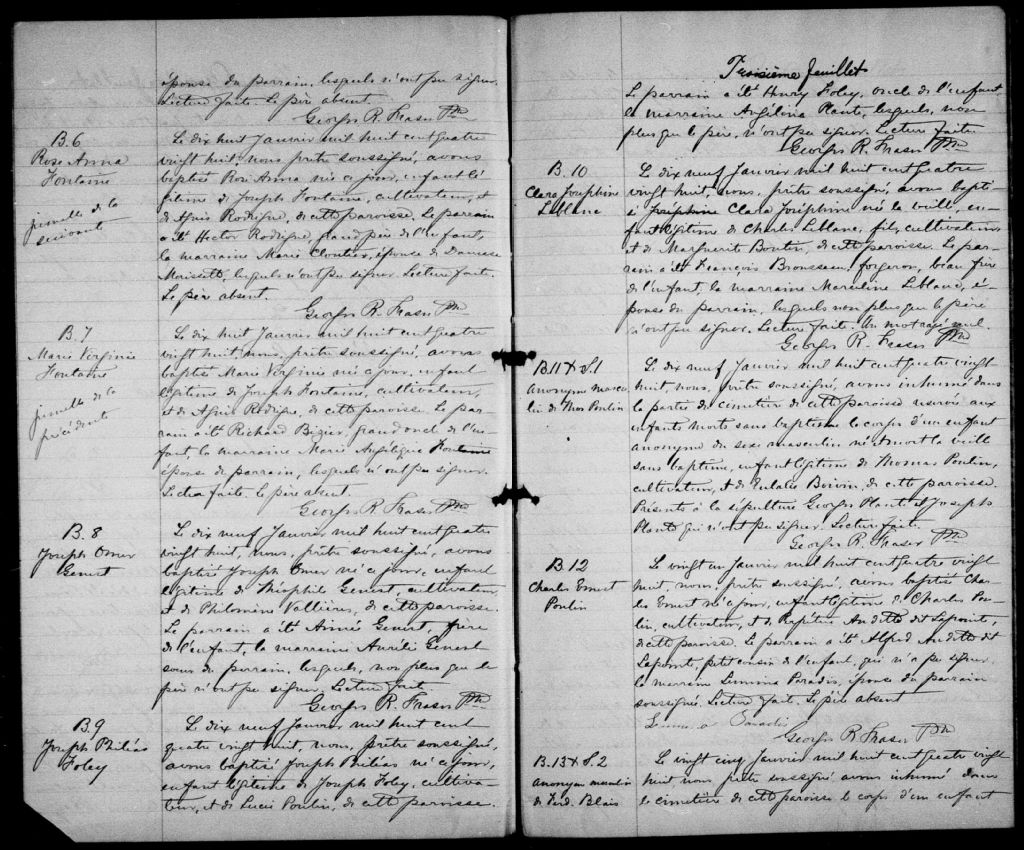 épouse du parrain, lesquels n'ont pu signer.
Lecture faite. Le père absent.
Georges R. Fraser Ptre
B.6
Rose Anna
Fontaine
jumelle de la
suivante
Le dix huit Janvier mil huit cent quatre
vingt huit, nous, prêtre soussigné, avons
baptisé Rose Anna née ce jour, enfant lé
gitime de Joseph Fontaine, cultivateur, et
de Agnès Rodrigue, de cette paroisse. Le parrain
a été Hector Rodrigue, grand père de l'enfant,
la marraine Marie Cloutier, épouse de Damase
Morissette, lesquels n'ont pu signer. Lecture faite.
Le père absent.
Georges R. Fraser Ptre
B.7
Marie Virginie
Fontaine
jumelle de la
précédente
Le dix huit Janvier mil huit cent quatre
vingt huit, nous, prêtre soussigné, avons
baptisé Marie Virginie née ce jour, enfant
légitime de Joseph Fontaine, cultivateur,
et de Agnès Rodrigue, de cette paroisse. Le par-
rain a été Richard Bizier, grand oncle de l'en-
fant la marraine Marie Angélique Fontaine
épouse du parrain, lesquels n'ont pu signer.
Lecture faite. Le père absent.
Georges R. Fraser Ptre
B.8
Joseph Omer
Genest
Le dix neuf Janvier mil huit cent quatre
vingt huit, nous, prêtre soussigné, avons
baptisé Joseph Omer né ce jour, enfant
légitime de Théophile Genest, cultivateur
et de Philomène Vallières, de cette paroisse.
Le parrain a été Aimé Genest, frère
de l'enfant, la marraine Aurélie Genest
soeur du parrain, lesquels, non plus que le
père n'ont pu signer. Lecture faite.
Georges R. Fraser Ptre
B.9
Joseph Philias
Foley
Le dix neuf Janvier mil huit cent
quatre vingt huit, nous, prêtre soussigné,
avons baptisé Joseph Philias né ce jour,
enfant légitime de Joseph Foley, cultiva-
teur, et de Lucie Poulin, de cette paroisse.
Troisième feuillet
Le parrain a été Henry Foley, oncle de l'enfant
la marraine Angélina Plante, lesquels, non
plus que le père, n'ont pu signer. Lecture faite
Georges R. Fraser Ptre
B.10
Clara Joséphine
Leblanc
Le dix neuf Janvier mil huit cent quatre
vingt huit, nous, prêtre soussigné, avons bapti-
sé Joséphine Clara Joséphine née la veille, en-
fant légitime de Charles Leblanc, fils, cultivateur
et de Marguerite Boutin, de cette paroisse. Le par-
rain a été François Brousseau, forgeron, beau frère
de l'enfant, la marraine Marceline Leblanc, é-
pouse du parrain, lesquels non plus que le père
n'ont pu signer. Lecture faite. Un mot rayé nul.
Georges R. Fraser Ptre
B.11 & S.1
Anonyme mascu
lin de Thos Poulin
Le dix neuf Janvier mil huit cent quatre vingt
huit, nous, prêtre soussigné, avons inhumé dans
la partie du cimetière de cette paroisse réservée aux
enfants morts sans baptême le corps d'un enfant
anonyme du sexe masculin né et mort la veille
sans baptême, enfant légitime de Thomas Poulin,
cultivateur, et de Eulalie Boivin, de cette paroisse.
Présents à la sépulture Georges Plante et Joseph
Plante qui n'ont pu signer. Lecture faite.
Georges R. Fraser Ptre
B.12
Charles Ernest
Poulin
Le vingt un Janvier mil huit cent quatre vingt
huit, nous, prêtre soussigné, avons baptisé Char-
les Ernest né ce jour, enfant légitime de Charles Pou-
lin, cultivateur, et de Audette dit Lapointe,
de cette paroisse. Le parrain a été Alfred Audette dit
Lapointe, petit cousin de l'enfant, qui n'a pu signer,
la marraine Lumina Paradis, épouse du parrain
soussignée. Lecture faite. Le père absent
Lumina Paradis
Georges R. Fraser Ptre
B.13 & S.2
Anonyme masculin
de Ferd. Blais
Le vingt cinq Janvier mil huit cent quatre vingt
huit, nous prêtre soussigné avons inhumé dans
le cimetière de cette paroisse le corps d'un enfant